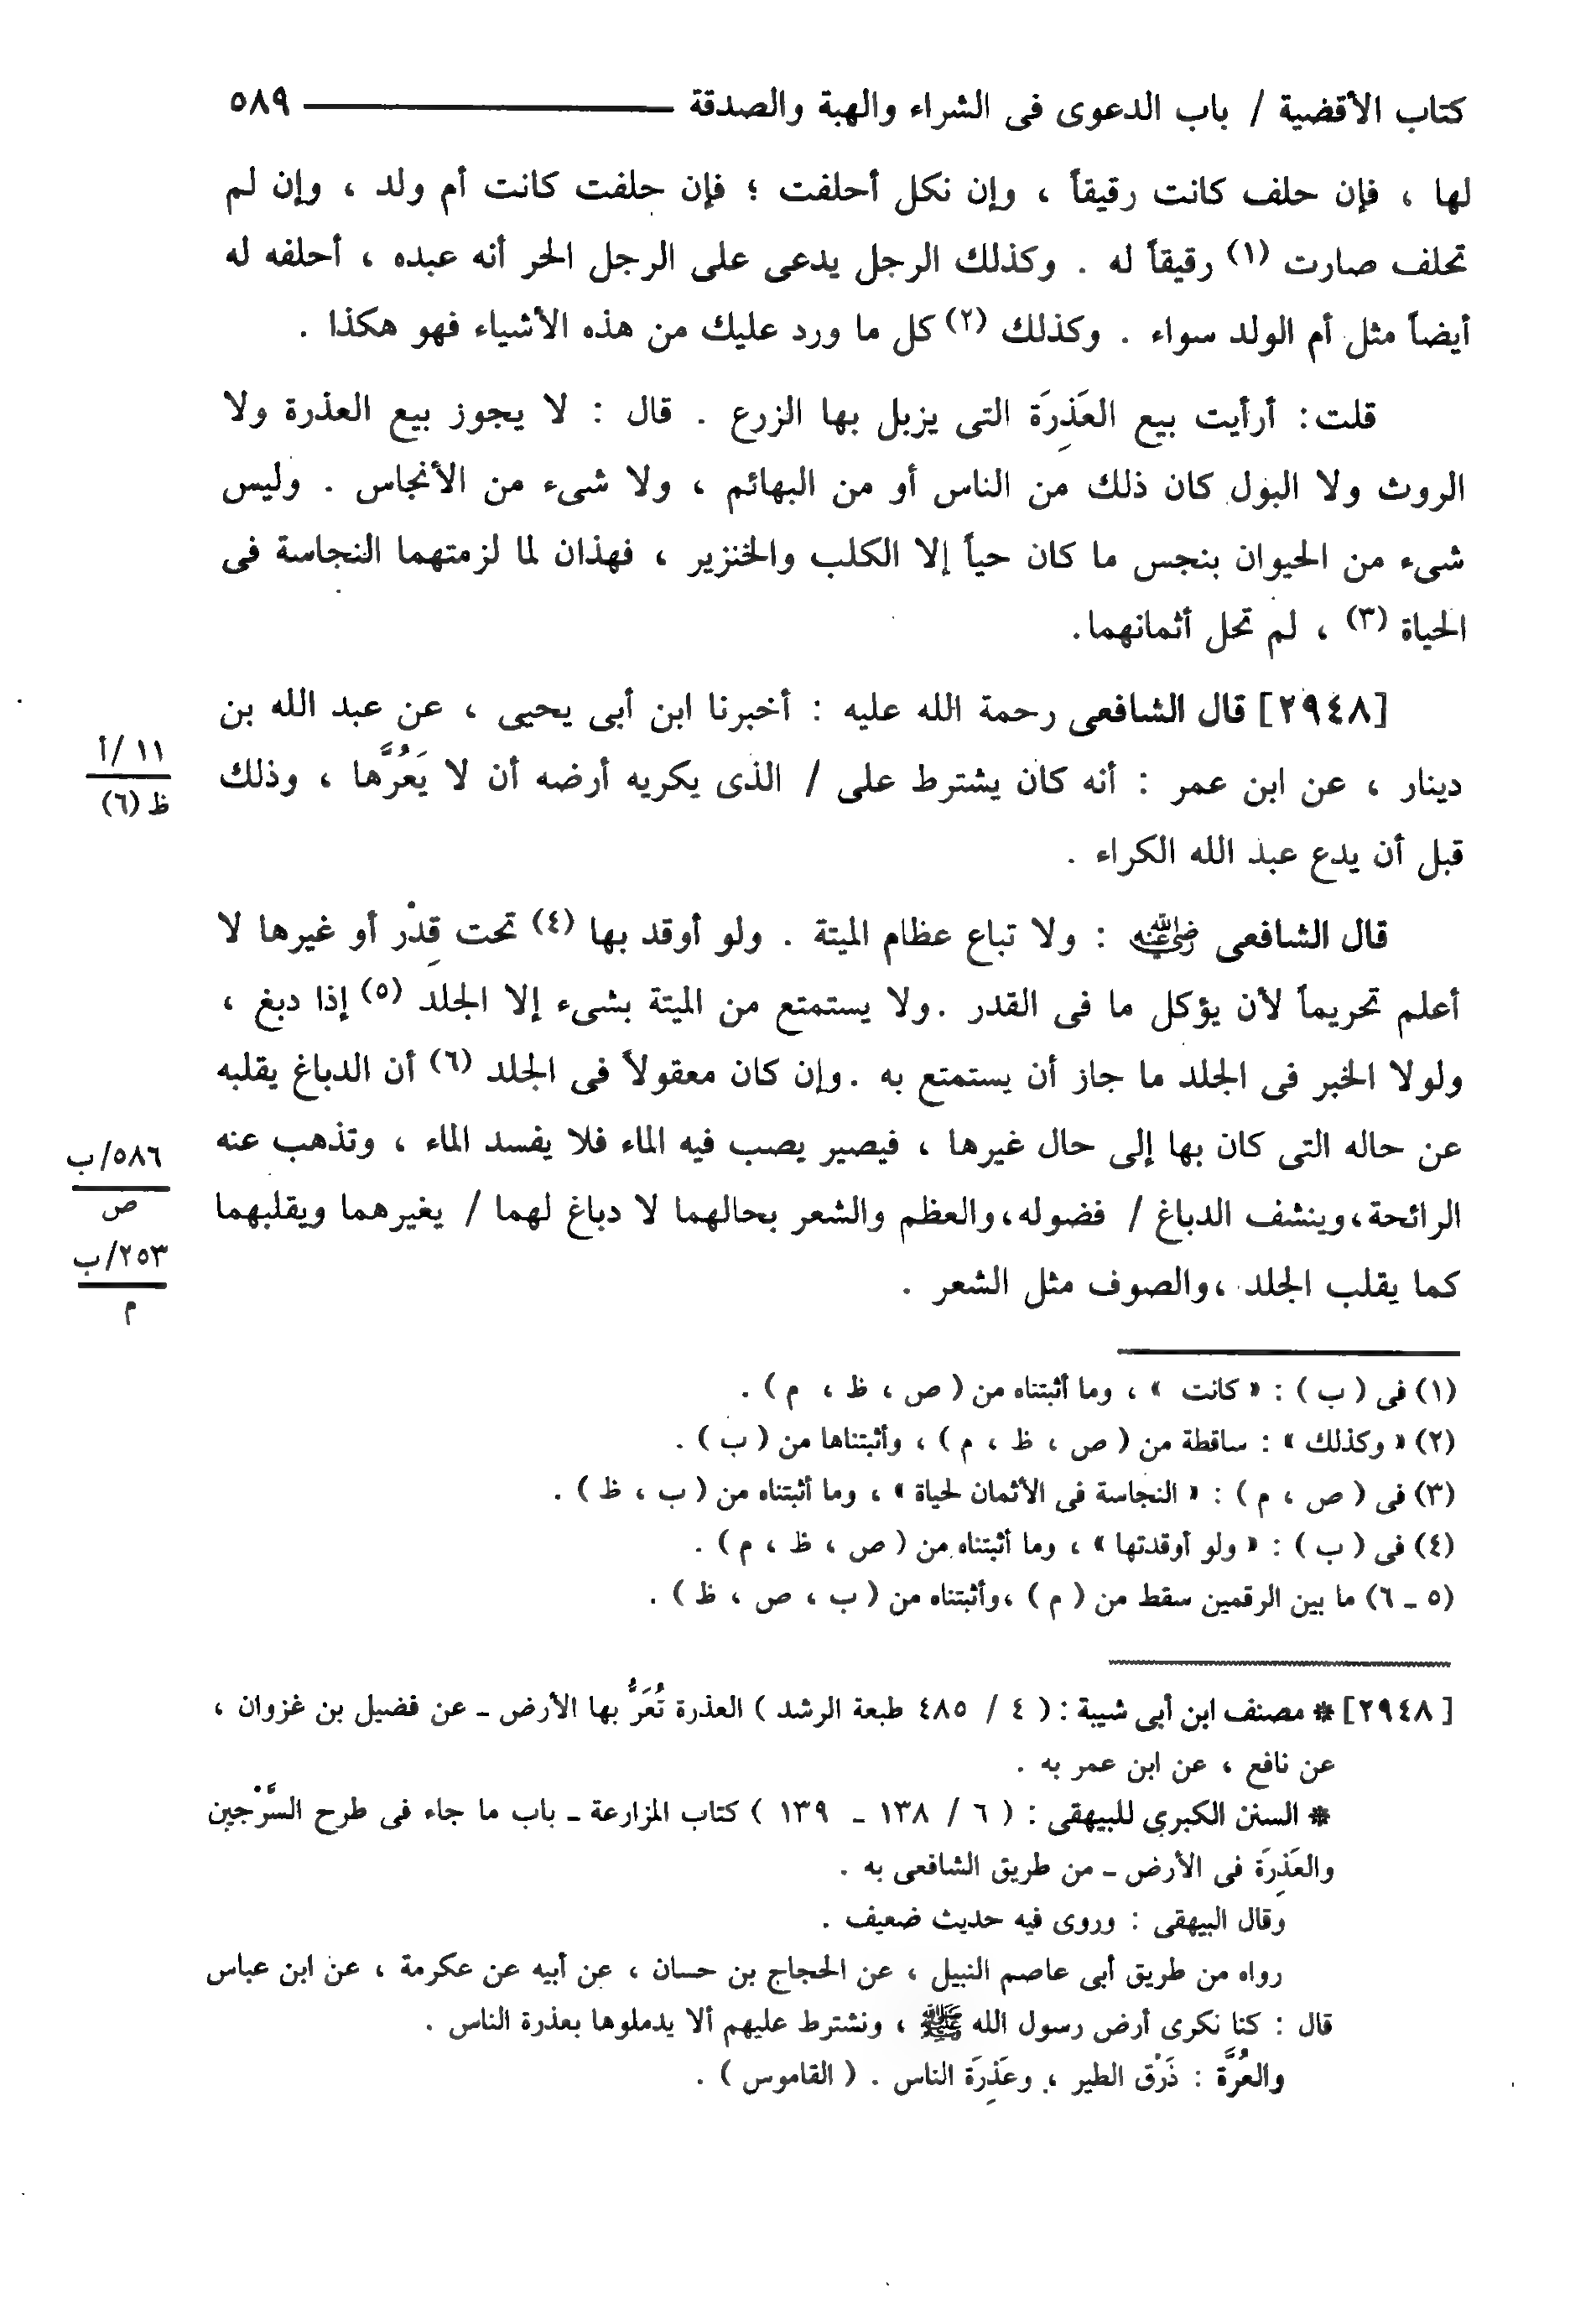 كتاب الأقضية / باب الدعوى فى الشراء والهبة والصدقة ٥٨٩
لها ، فإن حلف كانت رقيقاً ، وإن نكل أحلفت ؛ فإن حلفت كانت أم ولد ، وإن لم
تحلف صارت (١) رقيقاً له . وكذلك الرجل يدعى على الرجل الحر أنه عبده ، أحلفه له
أيضاً مثل أم الولد سواء . وكذلك (٢) كل ما ورد عليك من هذه الأشياء فهو هكذا .
قلت: أرأيت بيع العَذِرَة التى يزبل بها الزرع . قال : لا يجوز بيع العذرة ولا
الروث ولا البول كان ذلك من الناس أو من البهائم ، ولا شىء من الأنجاس . وليس
شىء من الحيوان بنجس ما كان حياً إلا الكلب والخنزير ، فهذان لما لزمتهما النجاسة فى
الحياة (٣) ، لم تحل أثمانهما.
[٢٩٤٨] قال الشافعى رحمة الله عليه : أخبرنا ابن أبى يحيى ، عن عبد الله بن
دينار ، عن ابن عمر : أنه كان يشترط على / الذى يكريه أرضه أن لا يَعُرَّها ، وذلك
١١ /أ
ظ (٦)
قبل أن يدع عبد الله الكراء .
قال الشافعى رضي الله عنه : ولا تباع عظام الميتة . ولو أوقد بها (٤) تحت قِدْر أو غيرها لا
أعلم تحريماً لأن يؤكل ما فى القدر .ولا يستمتع من الميتة بشىء إلا الجلد (٥) إذا دبغ ،
ولولا الخبر فى الجلد ما جاز أن يستمتع به .وإن كان معقولاً فى الجلد (٦) أن الدباغ يقلبه
عن حاله التى كان بها إلى حال غيرها ، فيصير يصب فيه الماء فلا يفسد الماء ، وتذهب عنه
٥٨٦/ب
ص
الرائحة،وينشف الدباغ / فضوله،والعظم والشعر بحالهما لا دباغ لهما / يغيرهما ويقلبهما
٢٥٣/ب
م
كما يقلب الجلد ،والصوف مثل الشعر .
(١) فى ( ب ) : « كانت » ، وما أثبتناه من ( ص ، ظ ، م ) .
(٢) « وكذلك » : ساقطة من ( ص ، ظ ، م ) ، وأثبتناها من ( ب ) .
(٣) فى ( ص ، م ) : « النجاسة فى الأثمان لحياة » ، وما أثبتناه من ( ب ، ظ ) .
(٤) فى ( ب ) : « ولو أوقدتها » ، وما أثبتناه من ( ص ، ظ ، م ) .
(٥ ـ ٦) ما بين الرقمين سقط من ( م ) ،وأثبتناه من ( ب ، ص ، ظ ) .
[٢٩٤٨] * مصنف ابن أبى شيبة : ( ٤ / ٤٨٥ طبعة الرشد ) العذرة تُعَرُّ بها الأرض ـ عن فضيل بن غزوان ،
عن نافع ، عن ابن عمر به .
* السنن الكبرى للبيهقى : ( ٦ / ١٣٨ ـ ١٣٩ ) كتاب المزارعة ـ باب ما جاء فى طرح السَّرْجين
والعَذِرَة فى الأرض ـ من طريق الشافعى به .
وقال البيهقى : وروى فيه حديث ضعيف .
رواه من طريق أبى عاصم النبيل ، عن الحجاج بن حسان ، عن أبيه عن عكرمة ، عن ابن عباس
قال : كنا نكرى أرض رسول الله ﷺ ، ونشترط عليهم ألا يدملوها بعذرة الناس .
والعُرَّة : ذَرْق الطير ، وعَذِرَة الناس . ( القاموس ) .